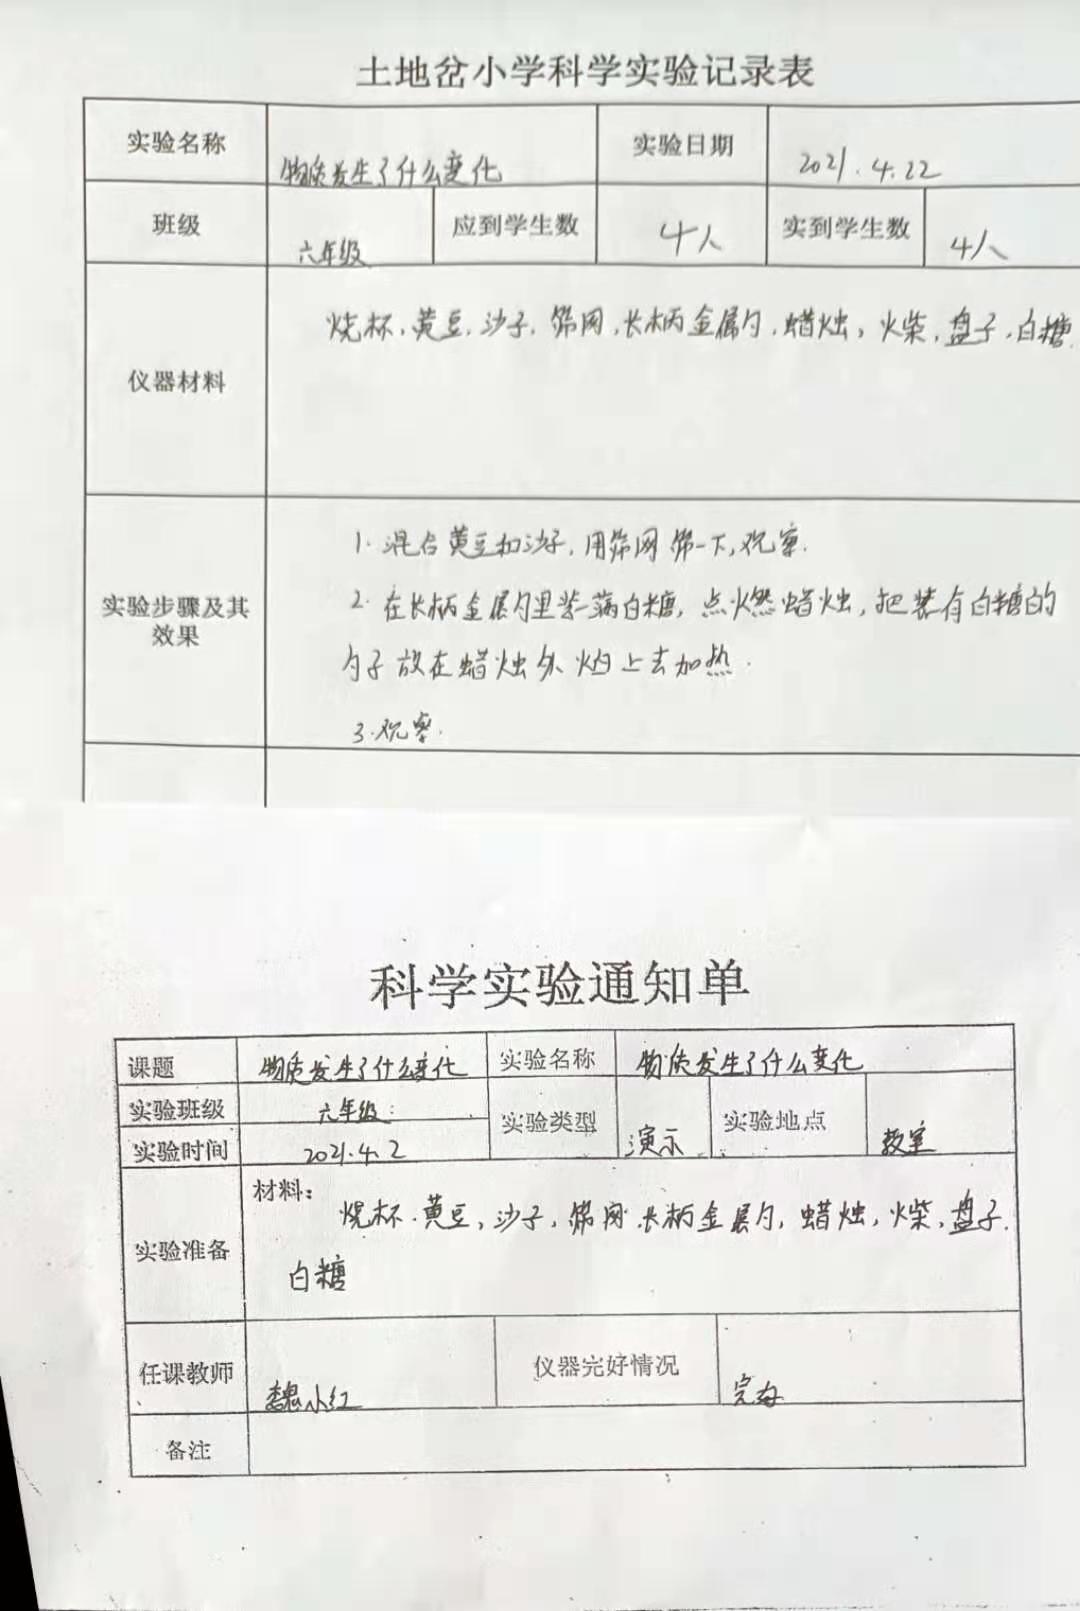 土地岔小学科学实验记录表
实验名称 物质发生了什么变化 实验日期 2021.4.22
班级 六年级 应到学生数 4人 实到学生数 4人
仪器材料 烧杯、黄豆、沙子、筛网、长柄金属勺、蜡烛，火柴，盘子、白糖
1. 混合黄豆和沙子，用筛网筛一下，观察.
实验步骤及其
效果
2. 在长柄金属勺里装一满白糖，点燃蜡烛，把装有白糖的
勺子放在蜡烛外焰上去加热.
3.观察.
科学实验通知单
课题 物质发生了什么变化 实验名称 物质发生了什么变化
实验班级 六年级 实验类型 演示 实验地点 教室
实验时间 2021.4.2
实验准备 材料：
烧杯、黄豆，沙子，筛网、长柄金属勺，蜡烛，火柴，盘子.
白糖
任课教师 魏小红 仪器完好情况 完好
备注